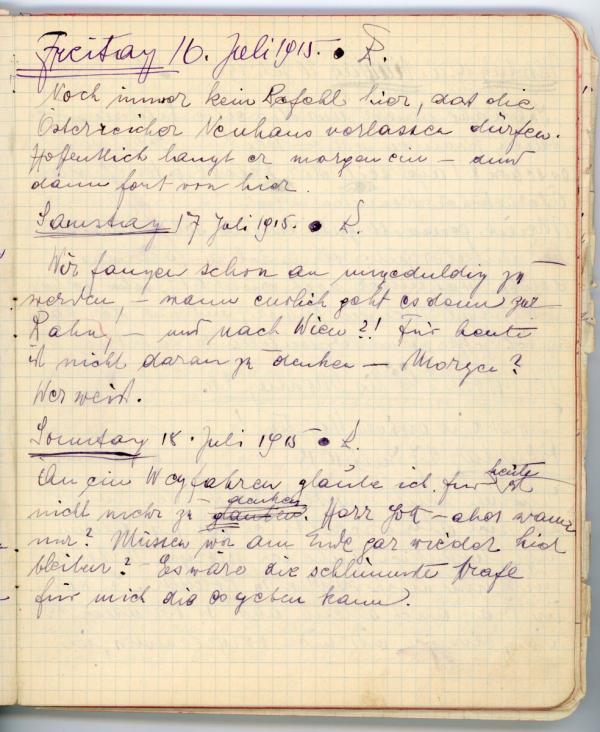 Freitag 16. Juli 1915. • L.
Noch immer kein Befehl hier, das die
Österreicher Neuhaus verlassen dürfen.
Hoffentlich langt er morgen ein – und
dann fort von hier.
Samstag 17 Juli 1915. • L.
Wir fangen schon an ungeduldig zu
werden, – wann endlich geht es denn zur
Bahn, – und nach Wien?! Für heute
ist nicht daran zu denken – Morgen?
Wer weiß.
Sonntag 18. Juli 1915 • L.
An ein Wegfahren glaube ich für heute ist
nicht mehr zu glauben denken. Herr Gott – aber wann
nur? Müssen wir am Ende gar wieder hier
bleiben? – Es wäre die schlimmste Strafe
für mich die es geben kann.